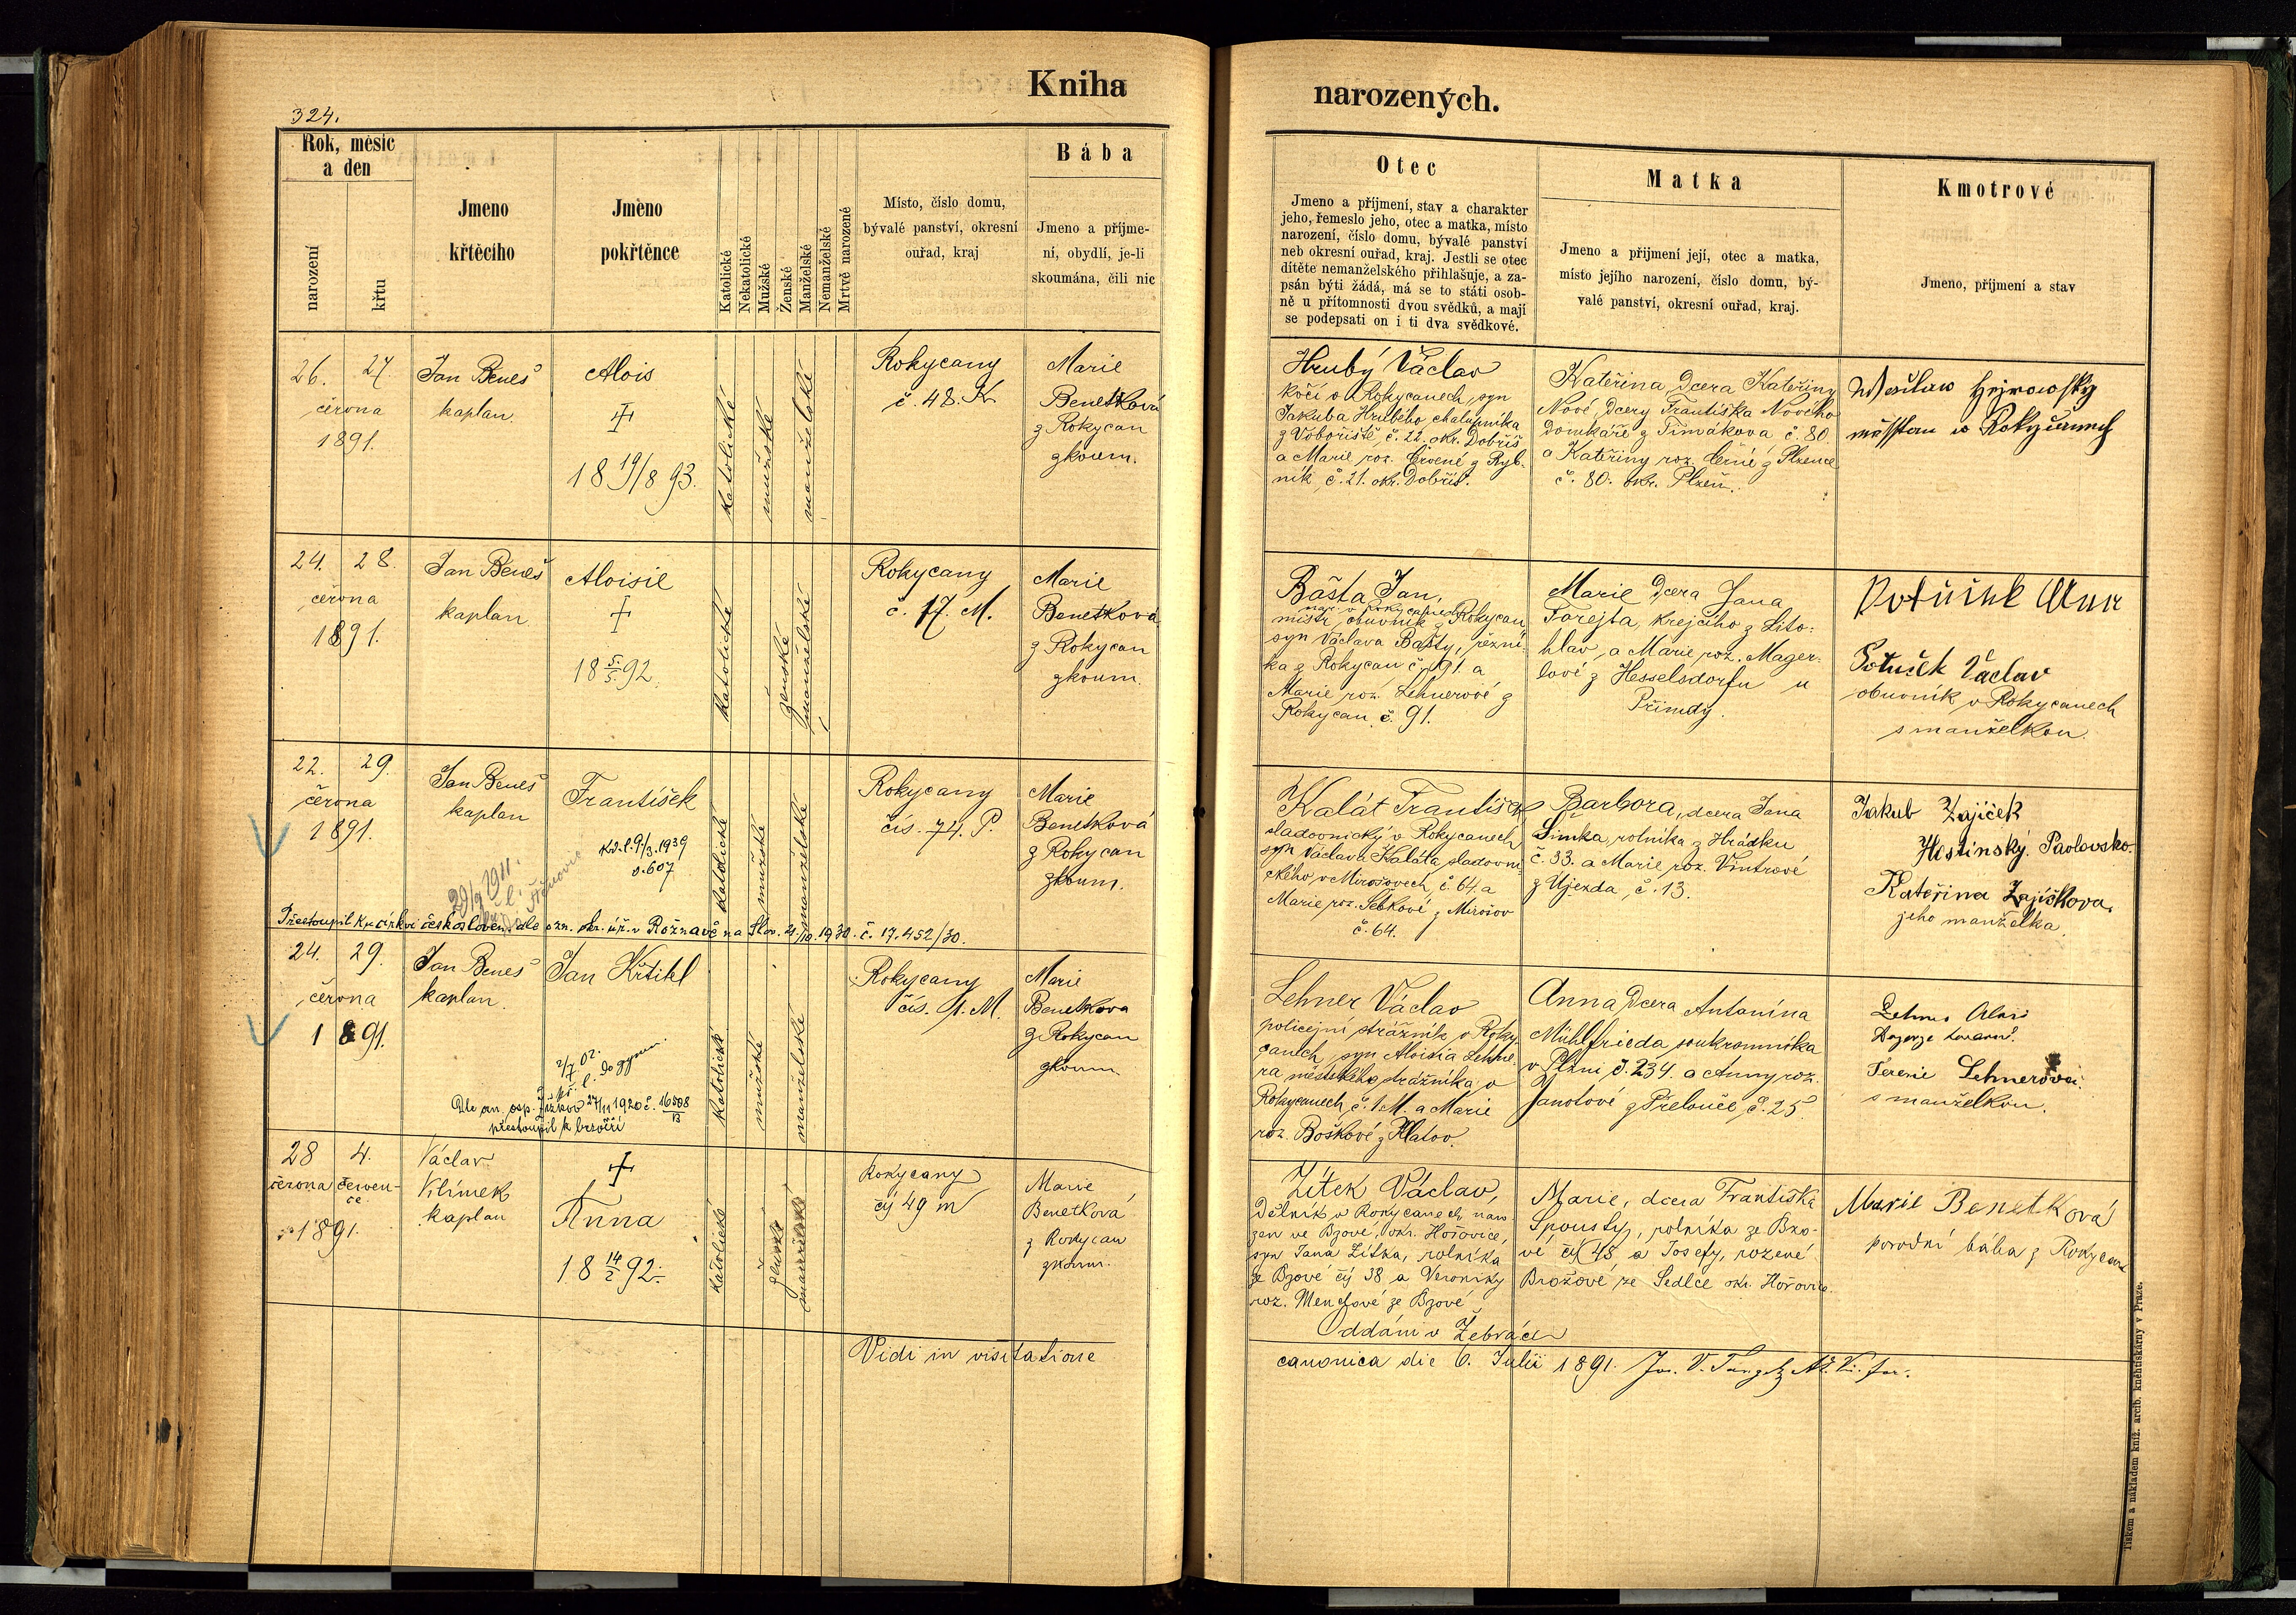 Kniha
narozených.
324.
Rok, měsíc
a den
narození
křtu
Jmeno
křtěcího
Jméno
pokřtěnce
Katolické
Nekatolické
Mužské
Ženské
Manželské
Nemanželské
Mrtvě narozené
Místo, číslo domu,
bývalé panství, okresní
ouřad, kraj
Bába
Jmeno a příjme-
ní, obydlí, je-li
skoumána, čili nic
Otec
Jmeno a příjmení, stav a charakter
jeho, řemeslo jeho, otec a matka, místo
narození, číslo domu, bývalé panství
neb okresní ouřad, kraj. Jestli se otec
dítěte nemanželského přihlašuje, a za-
psán býti žádá, má se to státi osob-
ně u přítomnosti dvou svědků, a mají
se podepsati on i ti dva svědkové.
Matka
Jmeno a přijmení její, otec a matka,
místo jejího narození, číslo domu, bý-
valé panství, okresní ouřad, kraj.
Kmotrové
Jmeno, příjmení a stav
26. 27.
června
1891.
Jan Beneš
kaplan.
Alois
+
18 19/8 93.
katolické
mužské
manželské
Rokycany
č. 48. K
Marie
Benetková
z Rokycan
zkoum.
Hrubý Václav
kočí v Rokycanech, syn
Jakuba Hrubého chalupníka
z Voborište, č. 22. okr. Dobříš
a Marie roz. Červené z Ryb-
ník, č. 21. okr. Dobříš.
Kateřina, dcera Kateřiny
Nové, dcery Františka Nového
domkáře z Timákova č. 80.
a Kateřiny roz. Černé z Plzence
č. 80. okr. Plzeň.
24. 28.
června
1891.
Jan Beneš
kaplan.
Aloisie
+
18 5/5 92.
katolické
ženské
manželské
Rokycany
č. 17. M.
Marie
Benetková
z Rokycan
zkoum.
Bašta Jan,
nar. v Rokycanech
mistr obuvník z Rokycan
syn Václava Bašty, řezní-
ka z Rokycan č. 91. a
Marie roz. Lehnerové z
Rokycan č. 91.
Marie dcera Jana
Forejta, krejčího z Lito-
hlav, a Marie roz. Mager-
lové z Hesselsdorfu u
Přimdy.
Potuček Václav
obuvník v Rokycanech
s manželkou.
22. 29.
června
1891.
Jan Beneš
kaplan
František
29/9 1911.
katolické
mužské
manželské
Rokycany
čís. 74. P.
Marie
Benetková
z Rokycan
zkoum.
Kalát František
sladovnický v Rokycanech
syn Václava Kaláta, sladovni-
ckého v Mirošovech, č. 64. a
Marie roz. Sebkové z Mirošov
č. 64.
Barbora, dcera Jana
Šimka, rolníka z Hrádku
č. 33. a Marie roz. Vintrové
z Újezda, č. 13.
Jakub Zajíček
Hostinský. Pavlovsko.
Kateřina Zajíčkova,
jeho manželka.
Přestoupil ku církvi českosloven. dle ozn. okr. úř. v Rožnavě na Slov. 21/10. 1930. č. 17.452/30.
24. 29.
června
1891.
Jan Beneš
kaplan.
Jan Křtitel
2/7 02.
kř. l. do gymn.
Dle ozn. osp. Žižkov 27/11 1920 č. 16808/13
přestoupil k bezvěří
katolické
mužské
manželské
Rokycany
čís. 1. M.
Marie
Benetkova
z Rokycan
zkoum.
Lehner Václav
policejní strážník v Roky-
canech, syn Aloisia Lehne-
ra městského strážníka v
Rokycanech č. 1 M. a Marie
roz. Boškové z Klatov.
Anna dcera Antonína
Mühlfrieda soukromníka
v Plzni č. 234. a Anny roz.
Janotové z Přelouče, č. 25.
Lehner Alois
Terezie Lehnerova
s manželkou.
28 4.
června červen-
ce
1891.
Václav
Vilímek
kaplan
+
Anna
18 14/2 92.
katolické
ženské
manželské
Rokycany
čís 49 m
Marie
Benetková
z Rokycan
zkoum.
Zítek Václav,
dělník v Rokycanech naro-
zen ve Bzové, okr. Hořovice,
syn Jana Zítka, rolníka
ze Bzové čís 38 a Veroniky
roz. Menclové ze Bzové
Oddáni v Žebráce
Marie, dcera Františka
Spousty, rolníka ze Bzo-
vé čís 48 a Josefy, rozené
Brožové ze Sedlce okr. Hořovice.
Marie Benetková
porodní bába z Rokycan
Vidi in visitatione
canonica die 6. Julii 1891.
Tiskem a nákladem kníž. arcib. knihtiskárny v Praze.